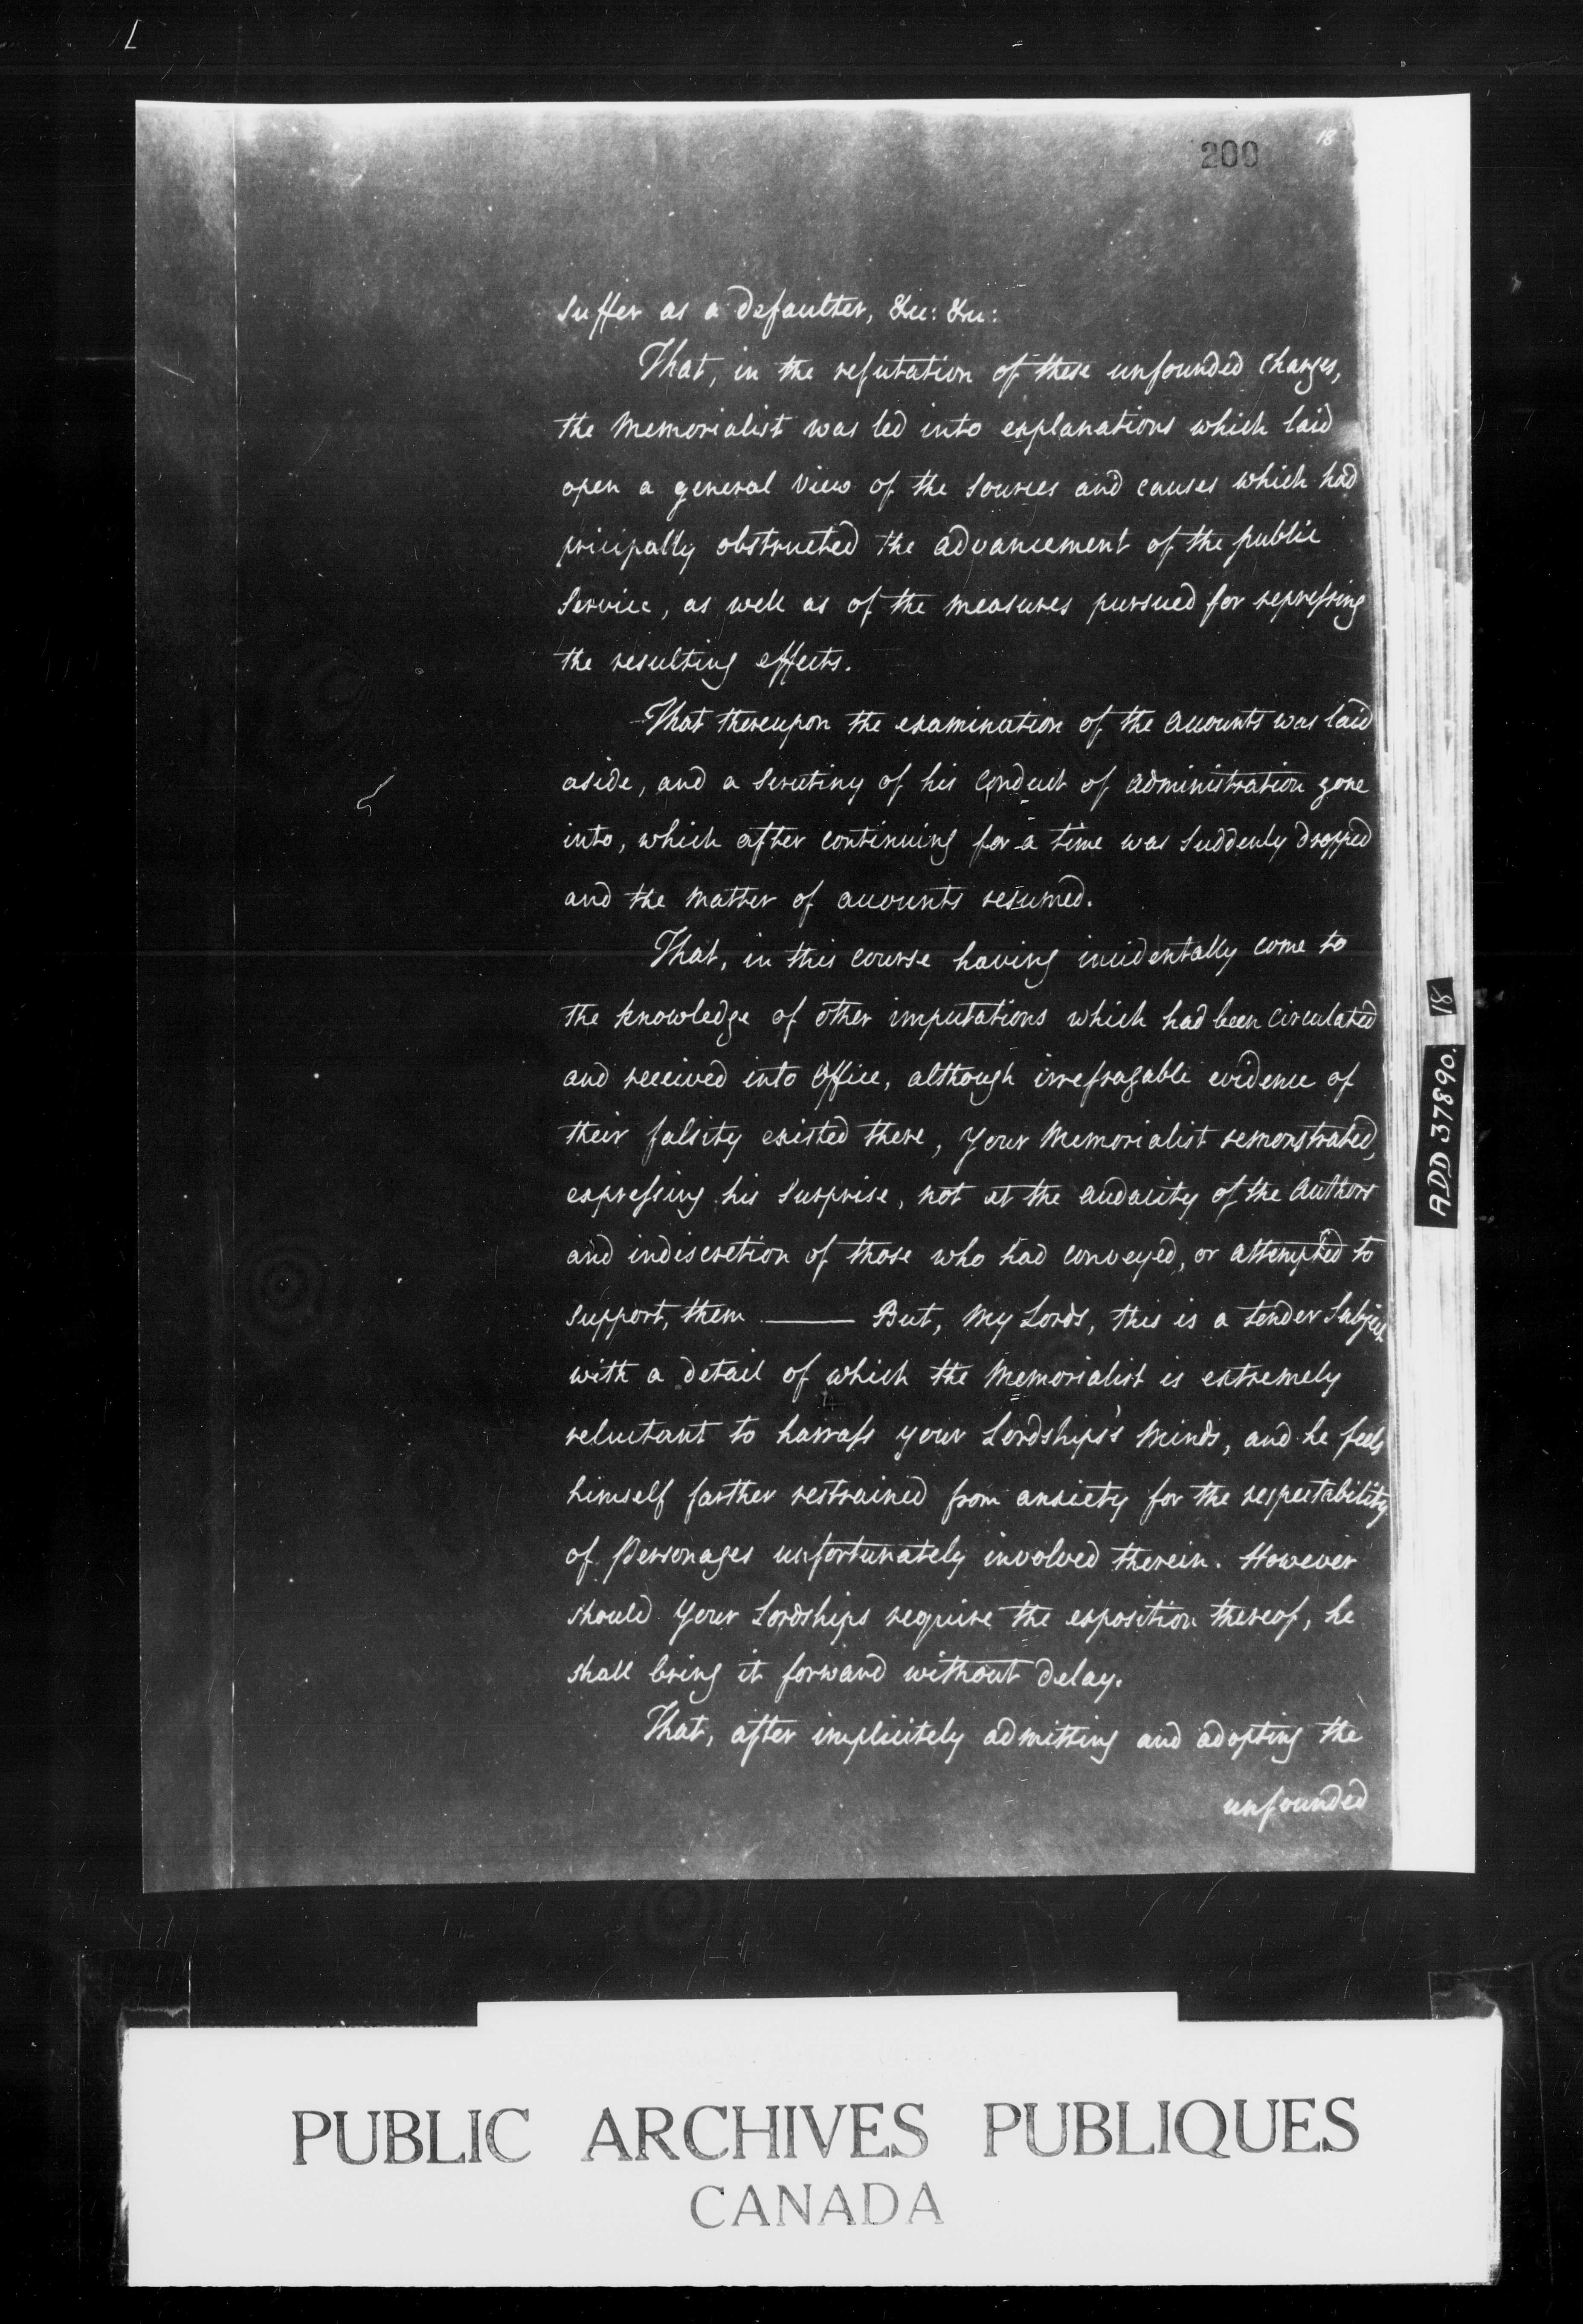 200
18
suffer as a defaulter, &c: &c:
That, in the refutation of these unfounded Charges,
the Memorialist was led into explanations which laid
open a general view of the sources and causes which had
pricipally obstructed the advancement of the public
Service, as well as of the measures pursued for repressing
the resulting effects.
That thereupon the examination of the accounts was laid
aside, and a scrutiny of his conduct of administration gone
into, which after continuing for a time was suddenly dropped
and the matter of accounts resumed.
That, in this course having incidentally come to
the knowledge of other imputations which had been circulated
and received into Office, although irrefragable evidence of
their falsity existed there, your Memorialist remonstrated,
expressing his surprise, not at the audacity of the Authors
and indiscretion of those who had conveyed, or attempted to
support, them —— But, My Lords, this is a tender Subject
with a detail of which the Memorialist is extremely
reluctant to harrass your Lordships's minds, and he feels
himself farther restrained from anxiety for the respectability
of Personages unfortunately involved therein. However
should your Lordships require the exposition thereof, he
shall bring it forward without delay.
That, after implicitely admitting and adopting the
unfounded
ADD 37890. 18
PUBLIC ARCHIVES PUBLIQUES
CANADA